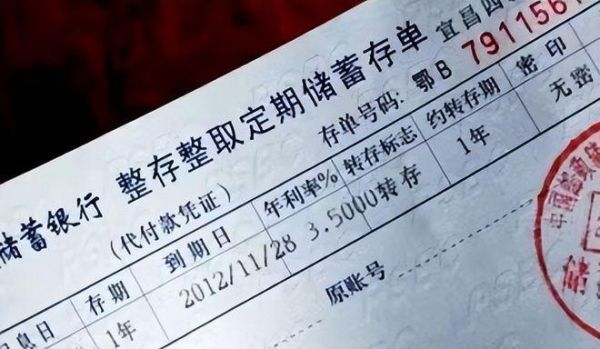 储蓄银行 整存整取定期储蓄存单 宜昌四
(代付款凭证) 存单号码: 鄂B 7911561
息日 存期 到期日 年利率% 转存标志 约转存期 密印
1年 2012/11/28 3.5000 转存 1年 无密
原账号
中国